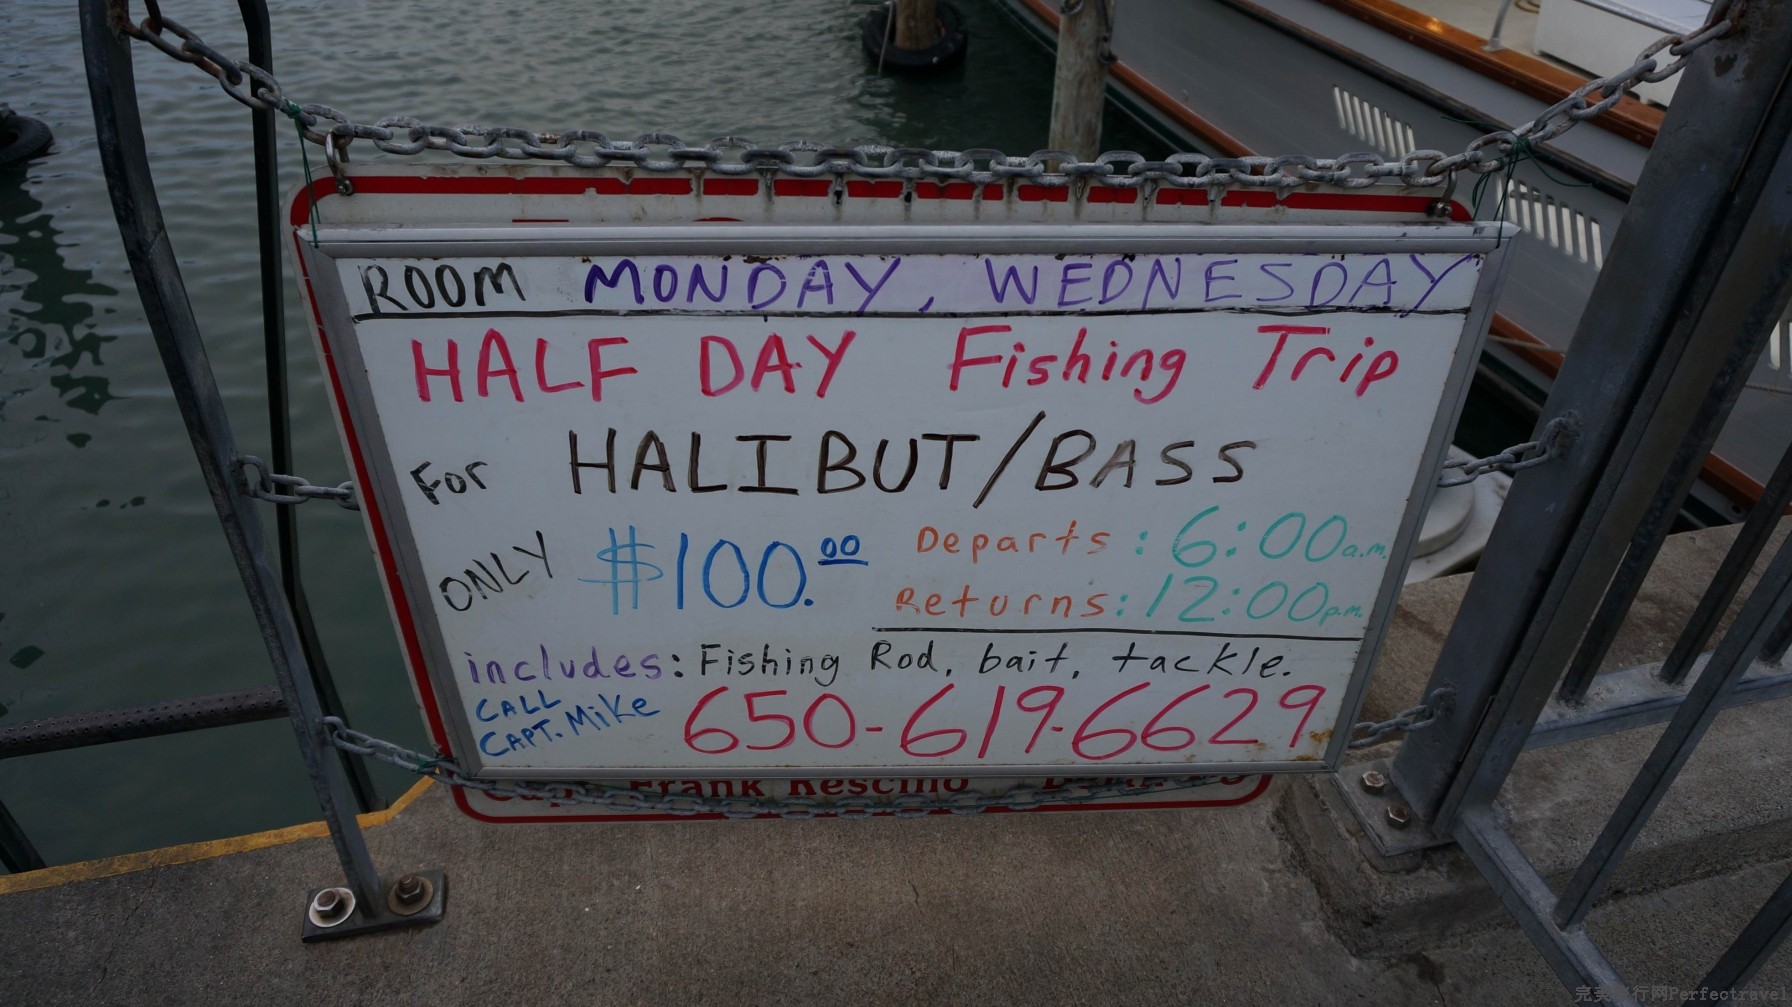 ROOM MONDAY, WEDNESDAY
HALF DAY Fishing Trip
For HALIBUT/BASS
ONLY $100.00
Departs: 6:00 a.m.
Returns: 12:00 p.m.
includes: Fishing Rod, bait, tackle.
CALL
CAPT. Mike 650-619-6629
Frank Rescino